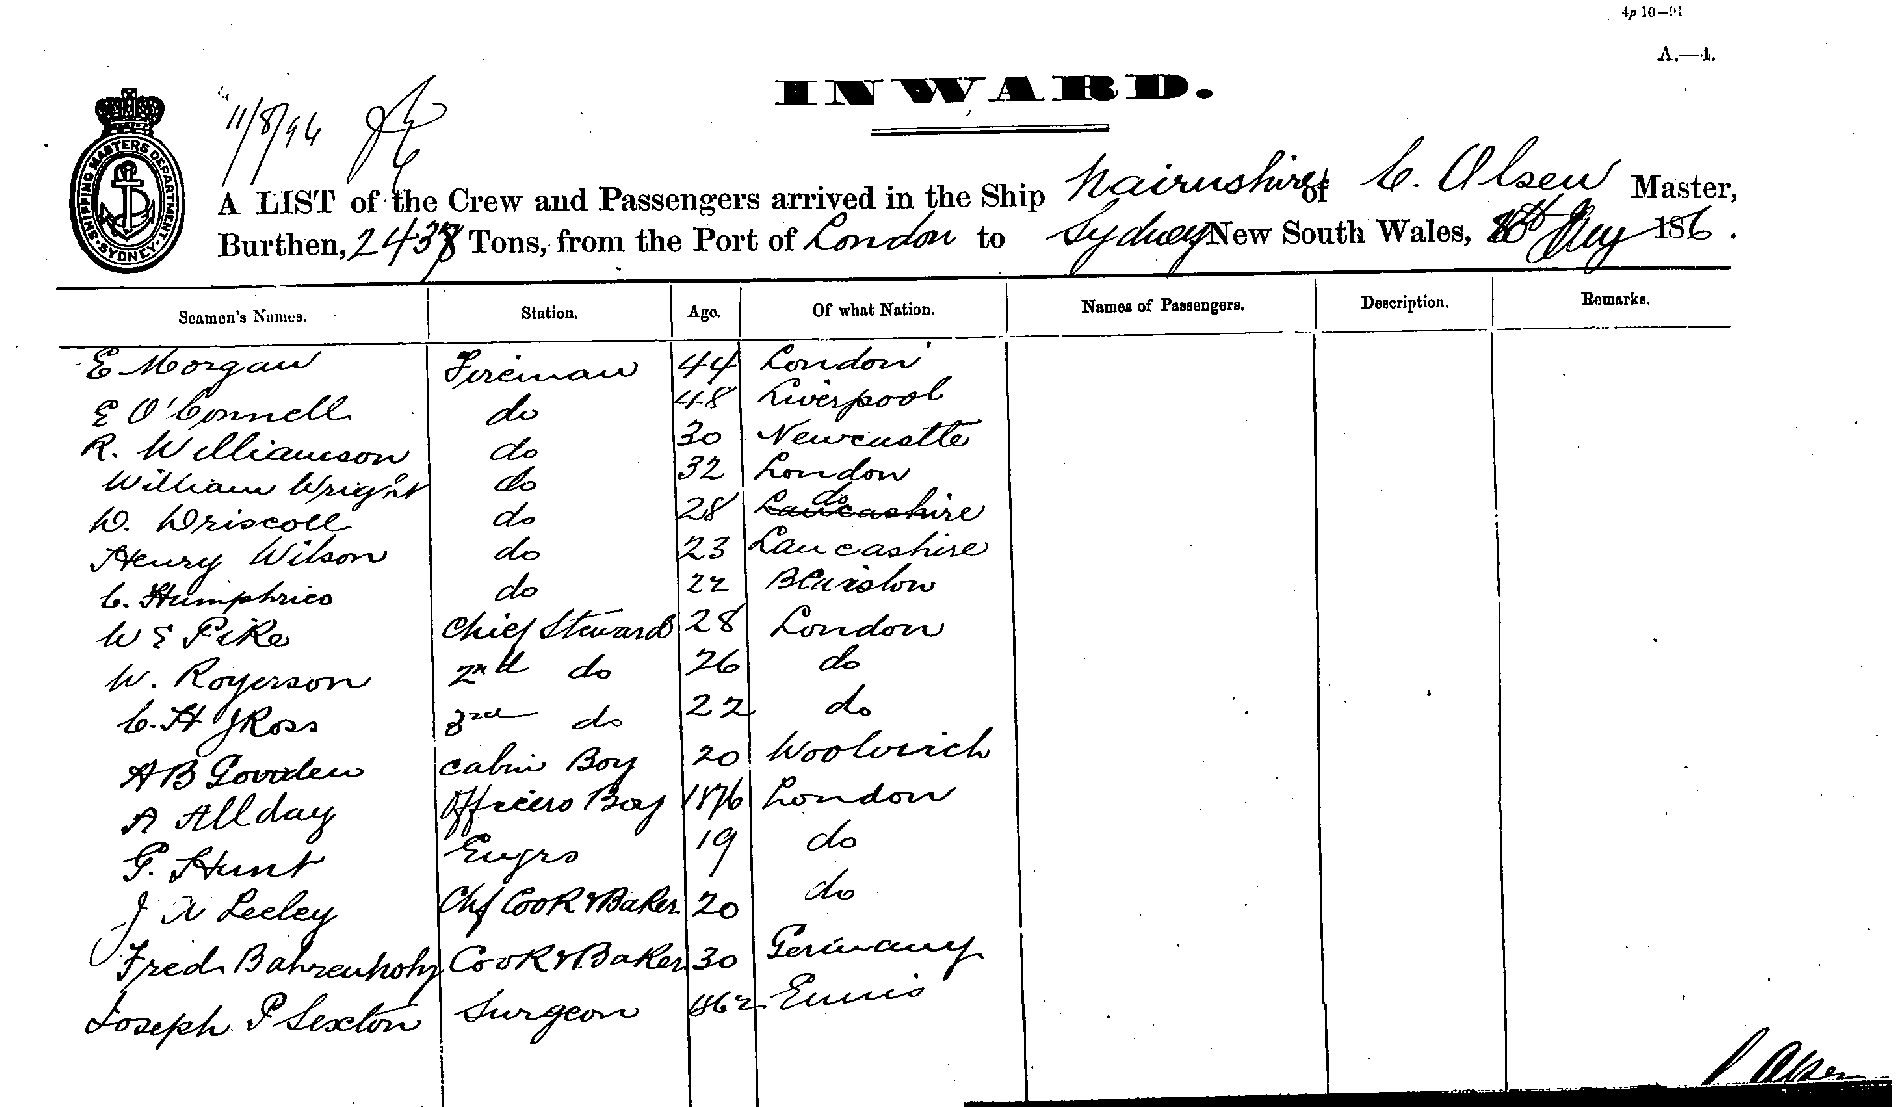 4p 10—91
A.—4.
INWARD.
11/8/96
SHIPPING MASTERS DEPARTMENT. SYDNEY.
A LIST of the Crew and Passengers arrived in the Ship Nairnshire of C. Olsen Master,
Burthen, 2438 Tons, from the Port of London to Sydney New South Wales, Aug 1896.
Seamen's Names. Station. Age. Of what Nation. Names of Passengers. Description. Remarks.
E Morgan Fireman 44 London
E O'Connell do 48 Liverpool
R. Williamson do 30 Newcastle
William Wright do 32 London
W. Driscoll do 28 Lancashire do
Henry Wilson do 23 Lancashire
C. Humphries do 22
W E Pike Chief Steward 28 London
W. Rogerson 2nd do 26 do
C. H J Ross 3rd do 22 do
A B Cabin Boy 20 Woolwich
A Allday Officers Boy 1876 London
G. Hunt Engrs 19 do
J A Leeley Chf Cook & Baker 20 do
Fred Cook & Baker 30 Germany
Joseph P Sexton Surgeon 1862 Ennis
C Olsen